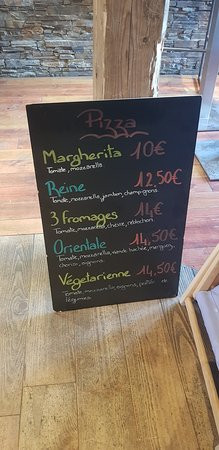 Pizza
Margherita 10€
Tomate, mozzarella
Reine 12,50€
Tomate, mozzarella, jambon, champignons
3 fromages 14€
Tomate, mozzarella, chèvre, reblochon
Orientale 14,50€
Tomate, mozzarella, viande hachée, merguez,
chorizo, oignons
Végétarienne 14,50€
Tomate, mozzarella, oignons,
légumes